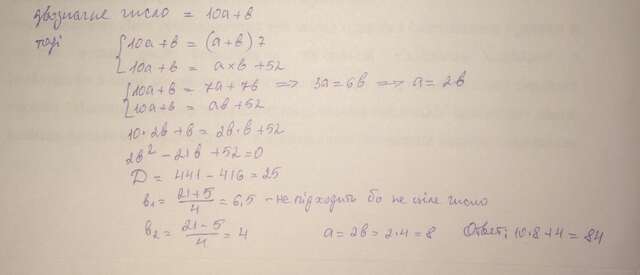 двозначне число = 10a+b
тоді
10a+b = (a+b) 7
10a+b = a×b +52
10a+b = 7a+7b => 3a=6b => a=2b
10a+b = ab+52
10·2b+b = 2b·b+52
2b² - 21b +52=0
D = 441 - 416 = 25
b₁ = (21+5)/4 = 6,5 - не підходить бо не ціле число
b₂ = (21-5)/4 = 4 a=2b=2·4=8 Ответ: 10·8+4=84